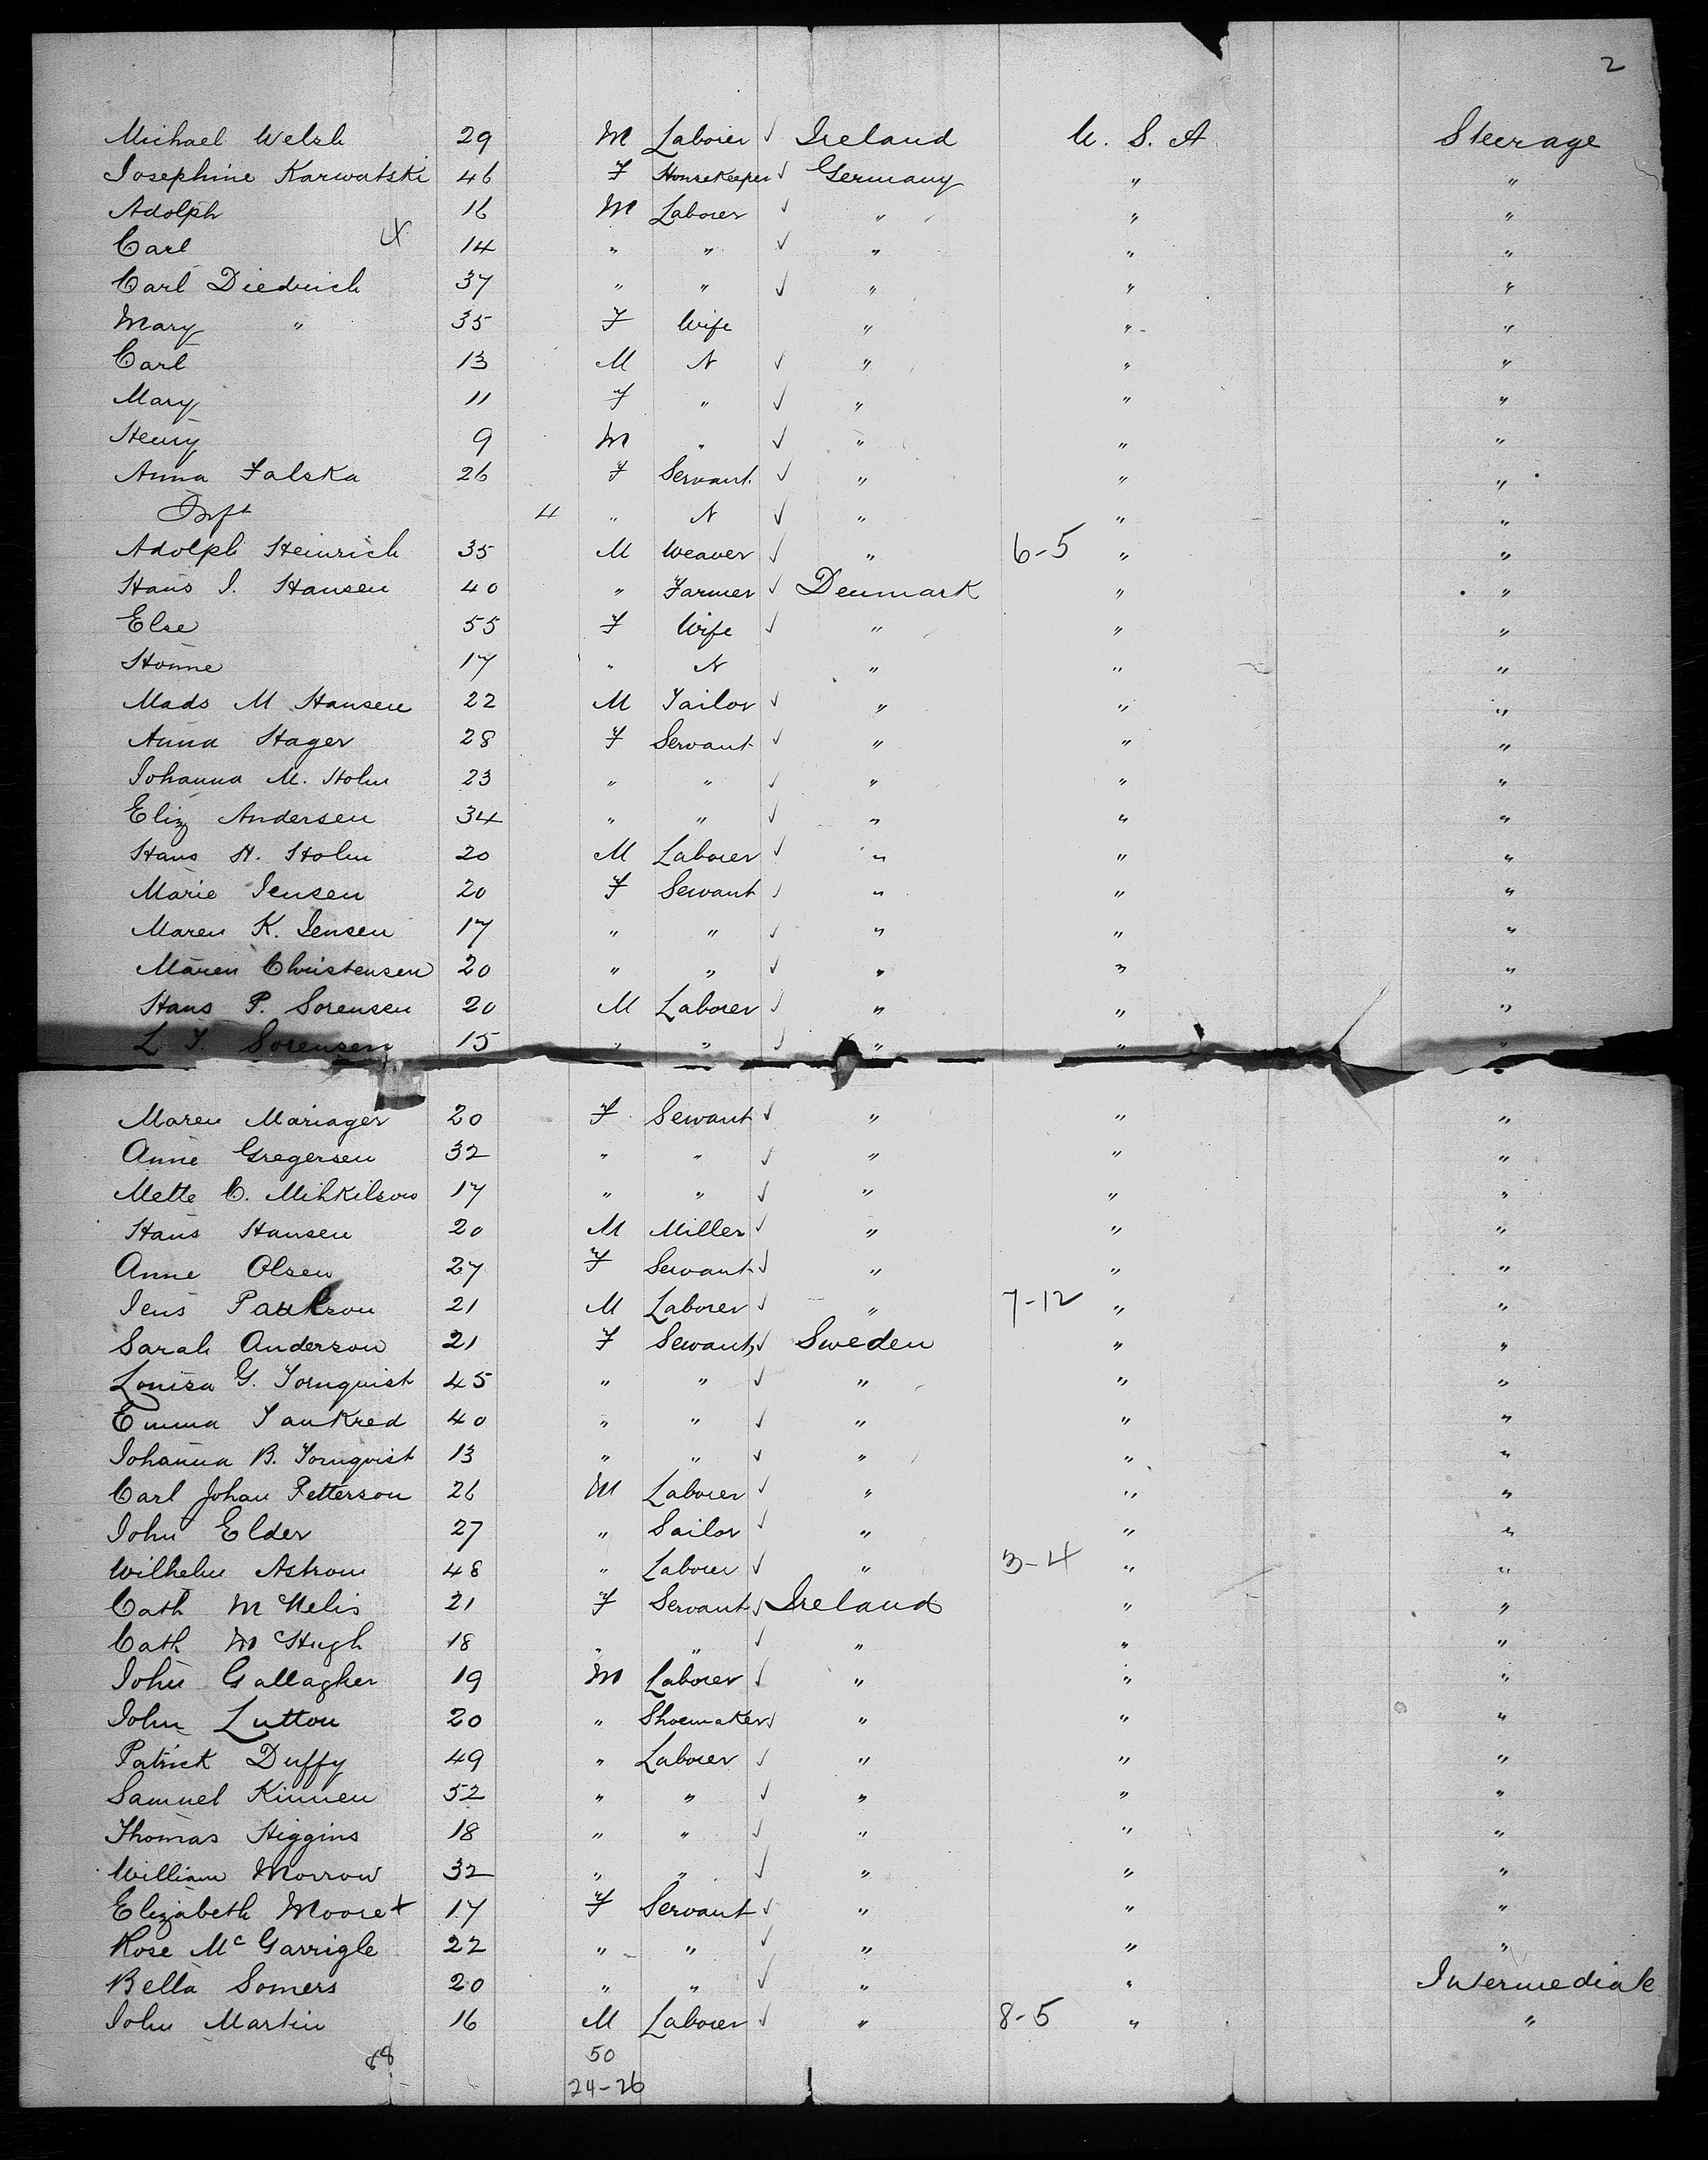 2
Michael Welsh 29 M Laborer ✓ Ireland U. S. A Steerage
Josephine Karwatski 46 F Housekeeper ✓ Germany " "
Adolph 16 M Laborer ✓ " " "
Carl X 14 " " ✓ " " "
Carl Diedrich 37 " " ✓ " " "
Mary " 35 F Wife " " "
Carl 13 M N ✓ " " "
Mary 11 F " ✓ " " "
Henry 9 M " ✓ " " "
Anna Falska 26 F Servant ✓ " " "
Inft 4 " N ✓ " " "
Adolph Heinrich 35 M Weaver ✓ " 6-5 " "
Hans J. Hansen 40 " Farmer ✓ Denmark " "
Else 55 F Wife ✓ " " "
Honne 17 " N " " "
Mads M Hansen 22 M Tailor ✓ " " "
Anna Hager 28 F Servant ✓ " " "
Johanna M. Holm 23 " " ✓ " " "
Eliz Andersen 34 " " ✓ " " "
Hans H. Holm 20 M Laborer ✓ " " "
Marie Jensen 20 F Servant ✓ " " "
Maren K. Jensen 17 " " ✓ " " "
Maren Christensen 20 " " ✓ " " "
Hans P. Sorensen 20 M Laborer ✓ " " "
L Sorensen 15 " " ✓ " " "
Maren Mariager 20 F Servant ✓ " " "
Anne Gregersen 32 " " ✓ " " "
Mette C. Mihkilsow 17 " " ✓ " " "
Hans Hansen 20 M Miller ✓ " " "
Anne Olsen 27 F Servant ✓ " " "
Jens Paulsson 21 M Laborer ✓ " 7-12 " "
Sarah Anderson 21 F Servant ✓ Sweden " "
Louisa G. Tornquist 45 " " ✓ " " "
Emma Tankred 40 " " ✓ " " "
Johanna B. Tornqvist 13 " " ✓ " " "
Carl Johan Petterson 26 M Laborer ✓ " " "
John Elder 27 " Sailor ✓ " " "
Wilhelm Astrom 48 " Laborer ✓ " 3-4 " "
Cath McNelis 21 F Servant ✓ Ireland " "
Cath McHugh 18 " " ✓ " " "
John Gallagher 19 M Laborer ✓ " " "
John Lutton 20 " Shoemaker ✓ " " "
Patrick Duffy 49 " Laborer ✓ " " "
Samuel Kinnen 52 " " ✓ " " "
Thomas Higgins 18 " " ✓ " " "
William Morrow 32 " " ✓ " " "
Elizabeth Moore + 17 F Servant ✓ " " "
Rose McGarrigle 22 " " ✓ " " "
Bella Somers 20 " " ✓ " " Intermediate
John Martin 16 M Laborer ✓ " 8-5 " "
88 50
24-26